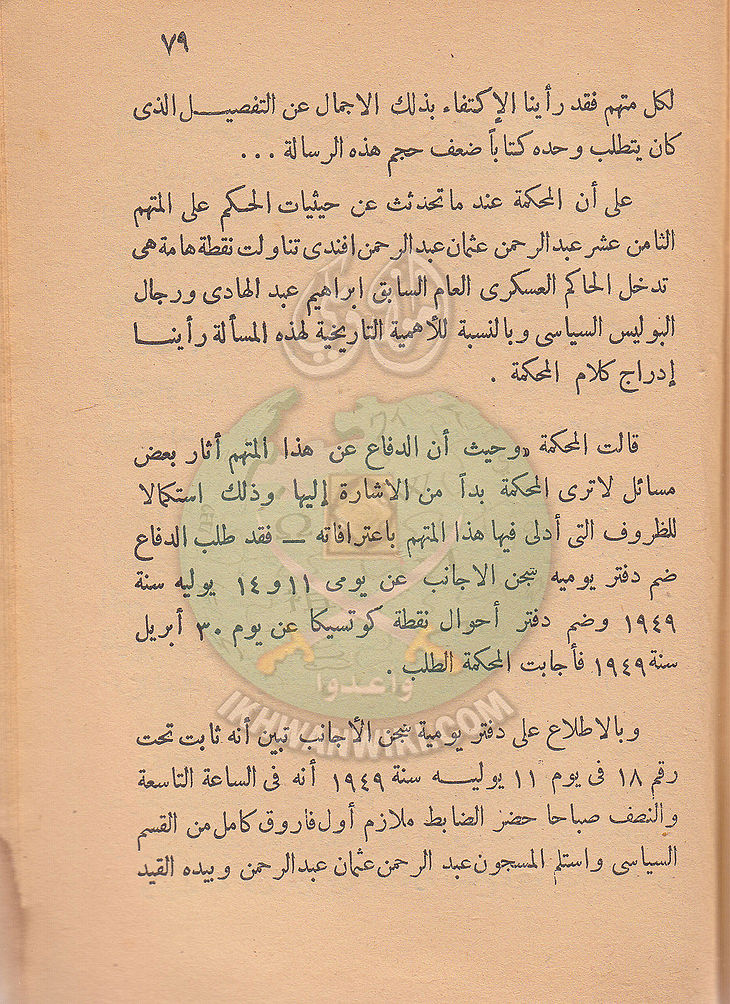 ٧٩
لكل متهم فقد رأينا الإكتفاء بذلك الاجمال عن التفصيل الذى
كان يتطلب وحده كتاباً ضعف حجم هذه الرسالة ...
على أن المحكمة عند ماتحدثت عن حيثيات الحكم على المتهم
الثامن عشر عبد الرحمن عثمان عبد الرحمن افندى تناولت نقطة هامة هى
تدخل الحاكم العسكرى العام السابق ابراهيم عبد الهادى ورجال
البوليس السياسى وبالنسبة للأهمية التاريخية لهذه المسألة رأينا
إدراج كلام المحكمة .
قالت المحكمة «وحيث أن الدفاع عن هذا المتهم أثار بعض
مسائل لاترى المحكمة بداً من الاشارة إليها وذلك استكمالا
للظروف التى أدلى فيها هذا المتهم باعترافاته — فقد طلب الدفاع
ضم دفتر يوميه سجن الاجانب عن يومى ١١ و ١٤ يوليه سنة
١٩٤٩ وضم دفتر أحوال نقطة كوتسيكا عن يوم ٣٠ أبريل
سنة ١٩٤٩ فأجابت المحكمة الطلب .
واعدوا
IKHWANWIKI.COM
وبالاطلاع على دفتر يومية سجن الأجانب تبين أنه ثابت تحت
رقم ١٨ فى يوم ١١ يوليه سنة ١٩٤٩ أنه فى الساعة التاسعة
والنصف صباحا حضر الضابط ملازم أول فاروق كامل من القسم
السياسى واستلم المسجون عبد الرحمن عثمان عبد الرحمن وبيده القيد